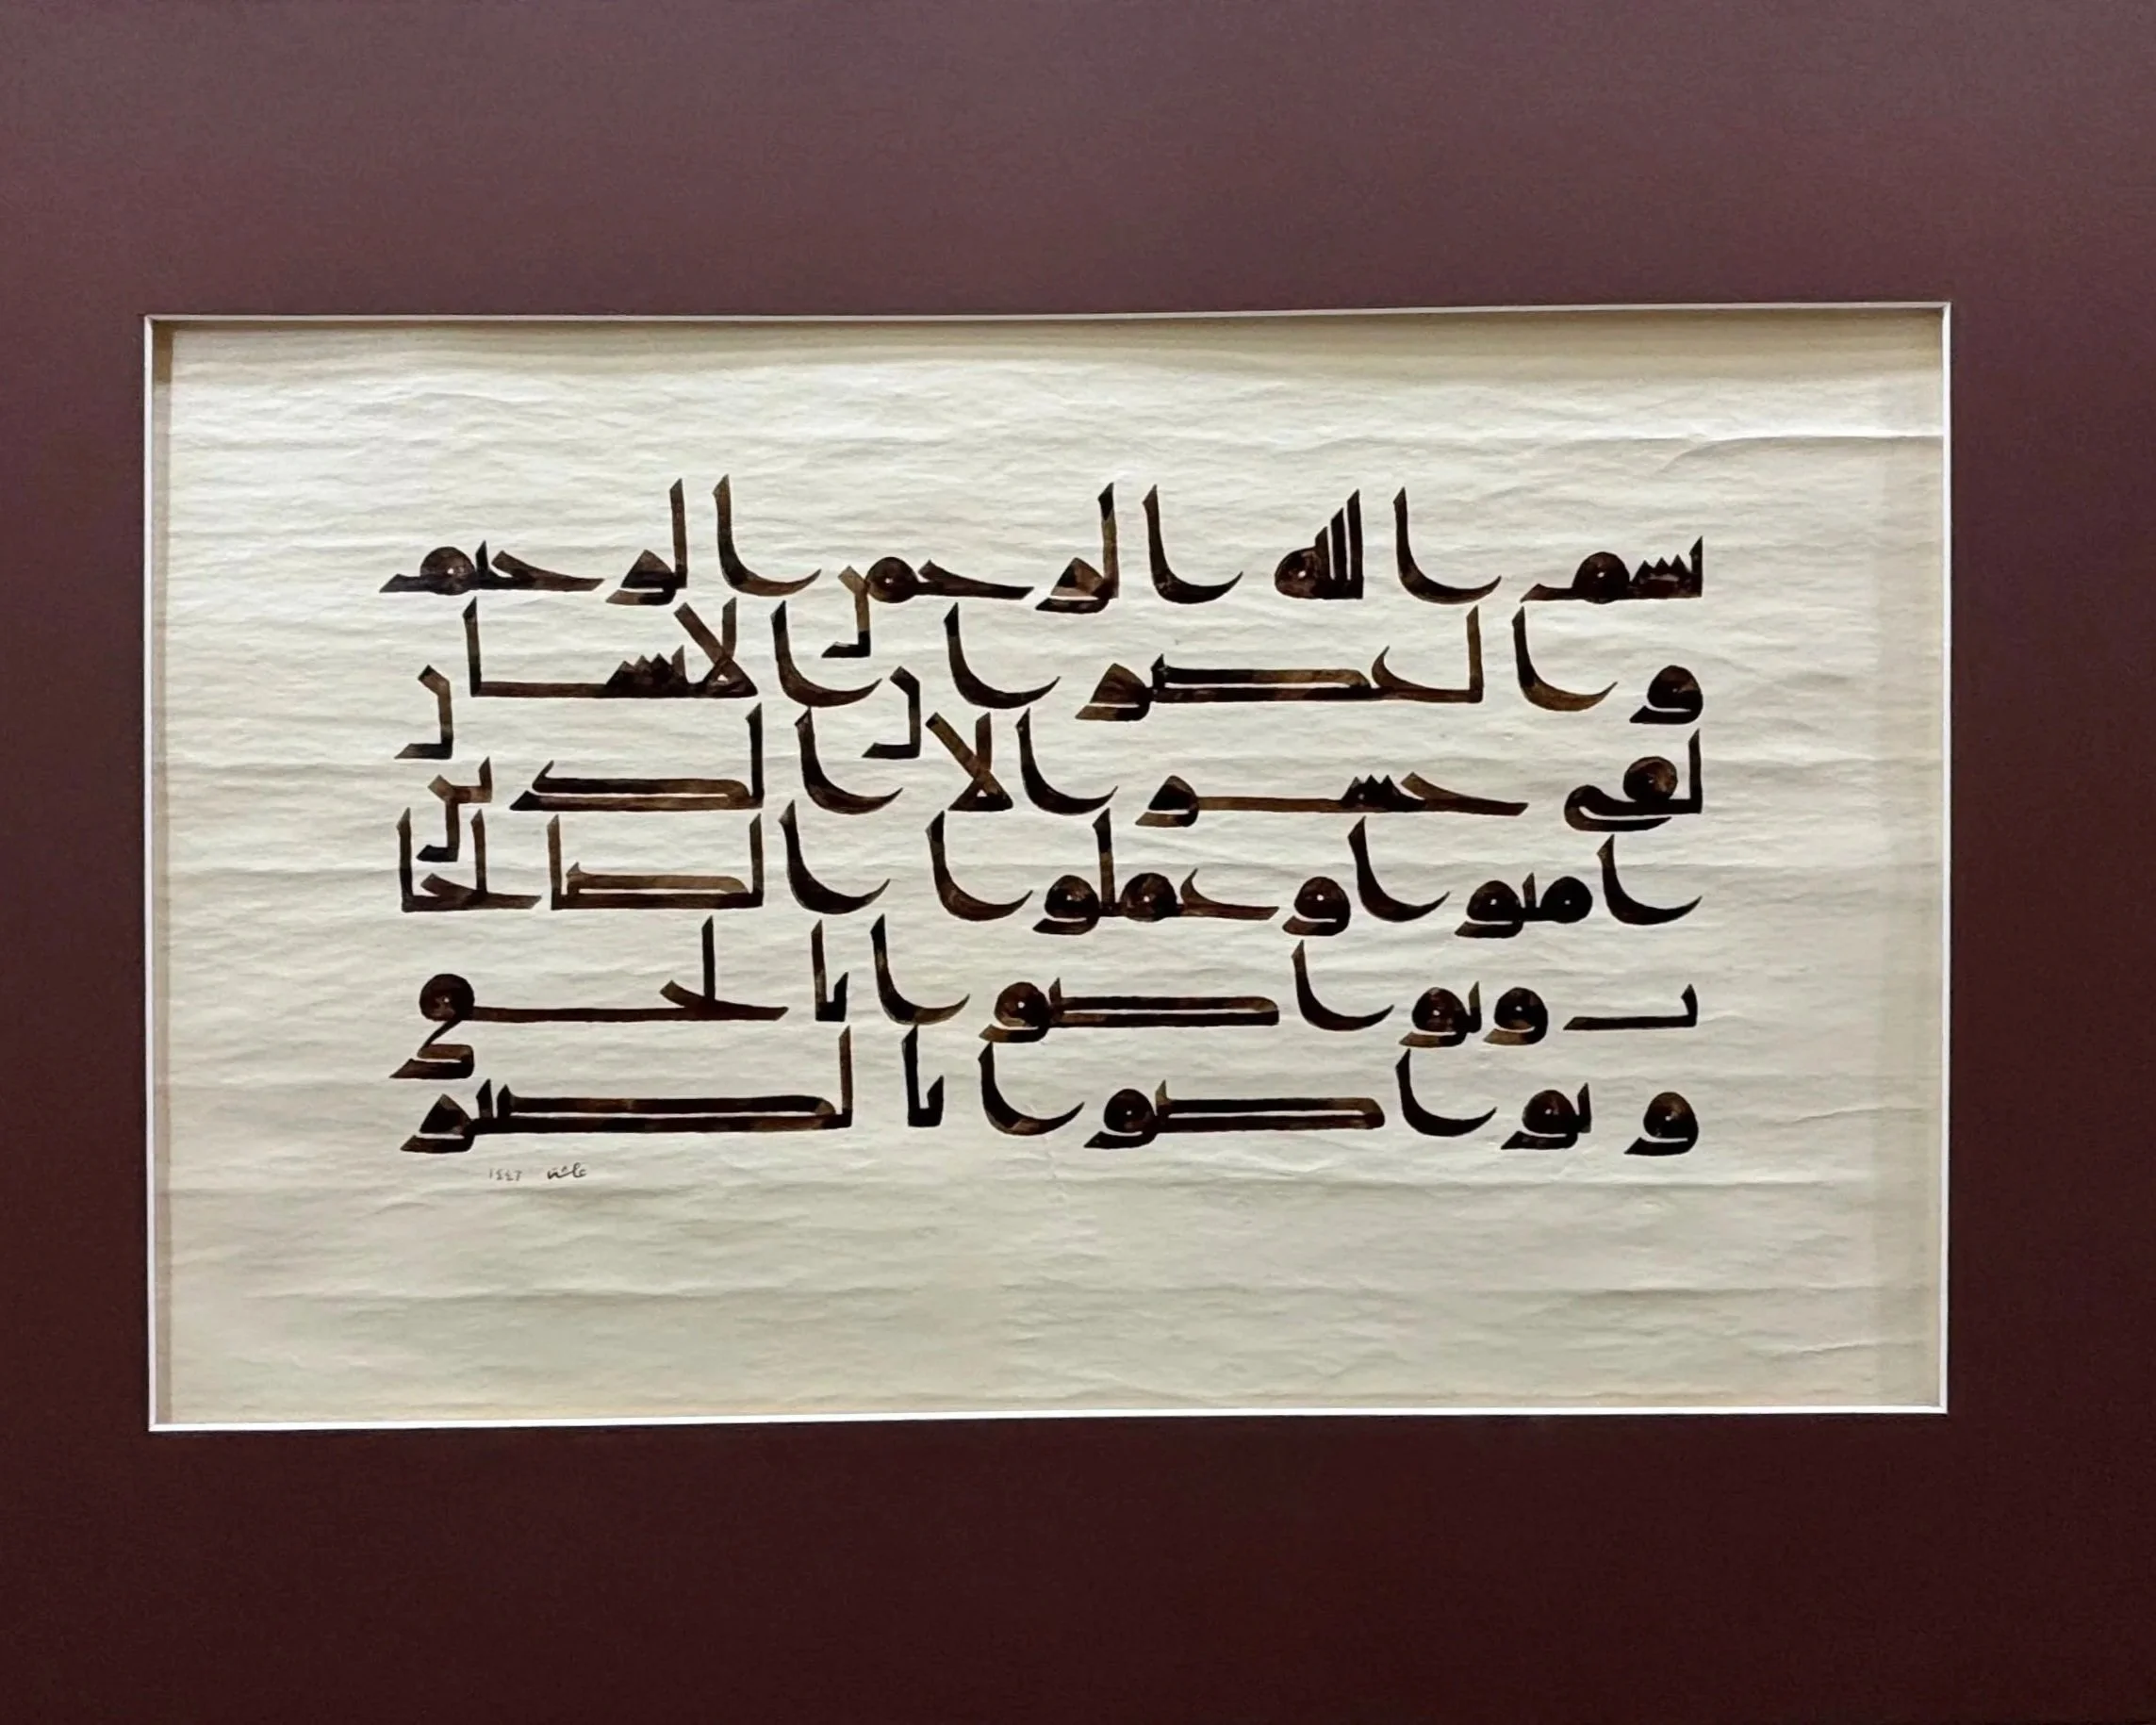 بسم الله الرحمن الرحيم
و العصر ان الانسان
لفي خسر الا الذين
امنوا و عملوا الصالحا
ت و توا صوا با لحق
و توا صوا با لصبر
١٤٤٦